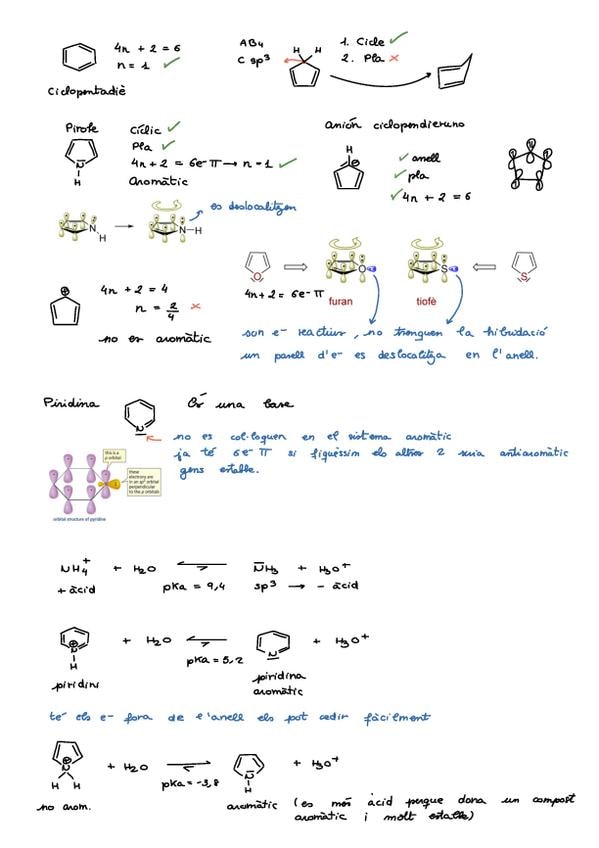 4n + 2 = 6
n = 1 ✓
Ciclopentadiè
AB4
C sp³
H H
1. Cicle ✓
2. Pla ×
Pirole
N
H
Cíclic ✓
Pla ✓
4n + 2 = 6e⁻ π → n = 1 ✓
Aromàtic
Anión ciclopendieruno
H
✓ anell
✓ pla
✓ 4n + 2 = 6
es deslocalitzen
N
H
N-H
4n + 2 = 4
n = 2/4 ×
no es aromàtic
O
O
S
S
furan
tiofè
4n + 2 = 6e⁻ π
son e⁻ reactius, no trenquen la hibridació
un parell d'e⁻ es deslocalitza en l'anell.
Piridina
N
És una base
no es col·loquen en el sistema aromàtic
ja té 6e⁻ π si fiquèssim els altres 2 seria antiaromàtic
gens estable.
this is a
p orbital
these
electrons are
in an sp² orbital
perpendicular
to the p orbitals
orbital structure of pyridine
NH4⁺ + H2O ⇌ NH3 + H3O⁺
+ àcid
pKa = 9,4
sp³ → - àcid
N
H
+ H2O ⇌
N
+ H3O⁺
pKa = 5,2
piridini
piridina
aromàtic
té els e⁻ fora de l'anell els pot cedir fàcilment
N
H H
+ H2O ⇌
N
H
+ H3O⁺
pKa = -3,8
no arom.
aromàtic
(es més àcid perque dona un compost
aromàtic i molt estable)